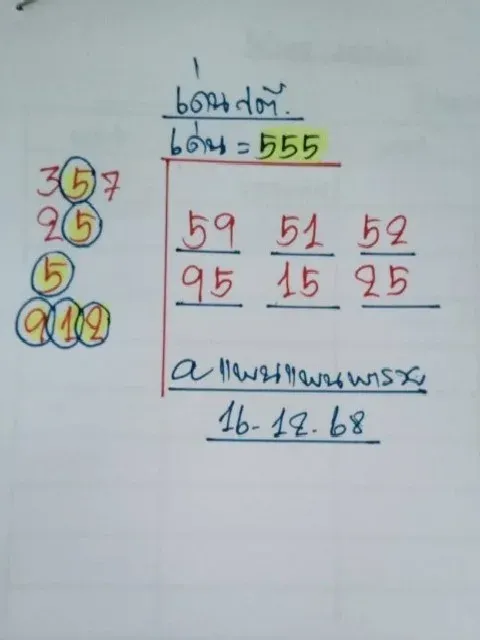 เด่น
เด่น = 555
357
25
5
912
59 51 52
95 15 25
a แพนแพนพารวย
16-12.68